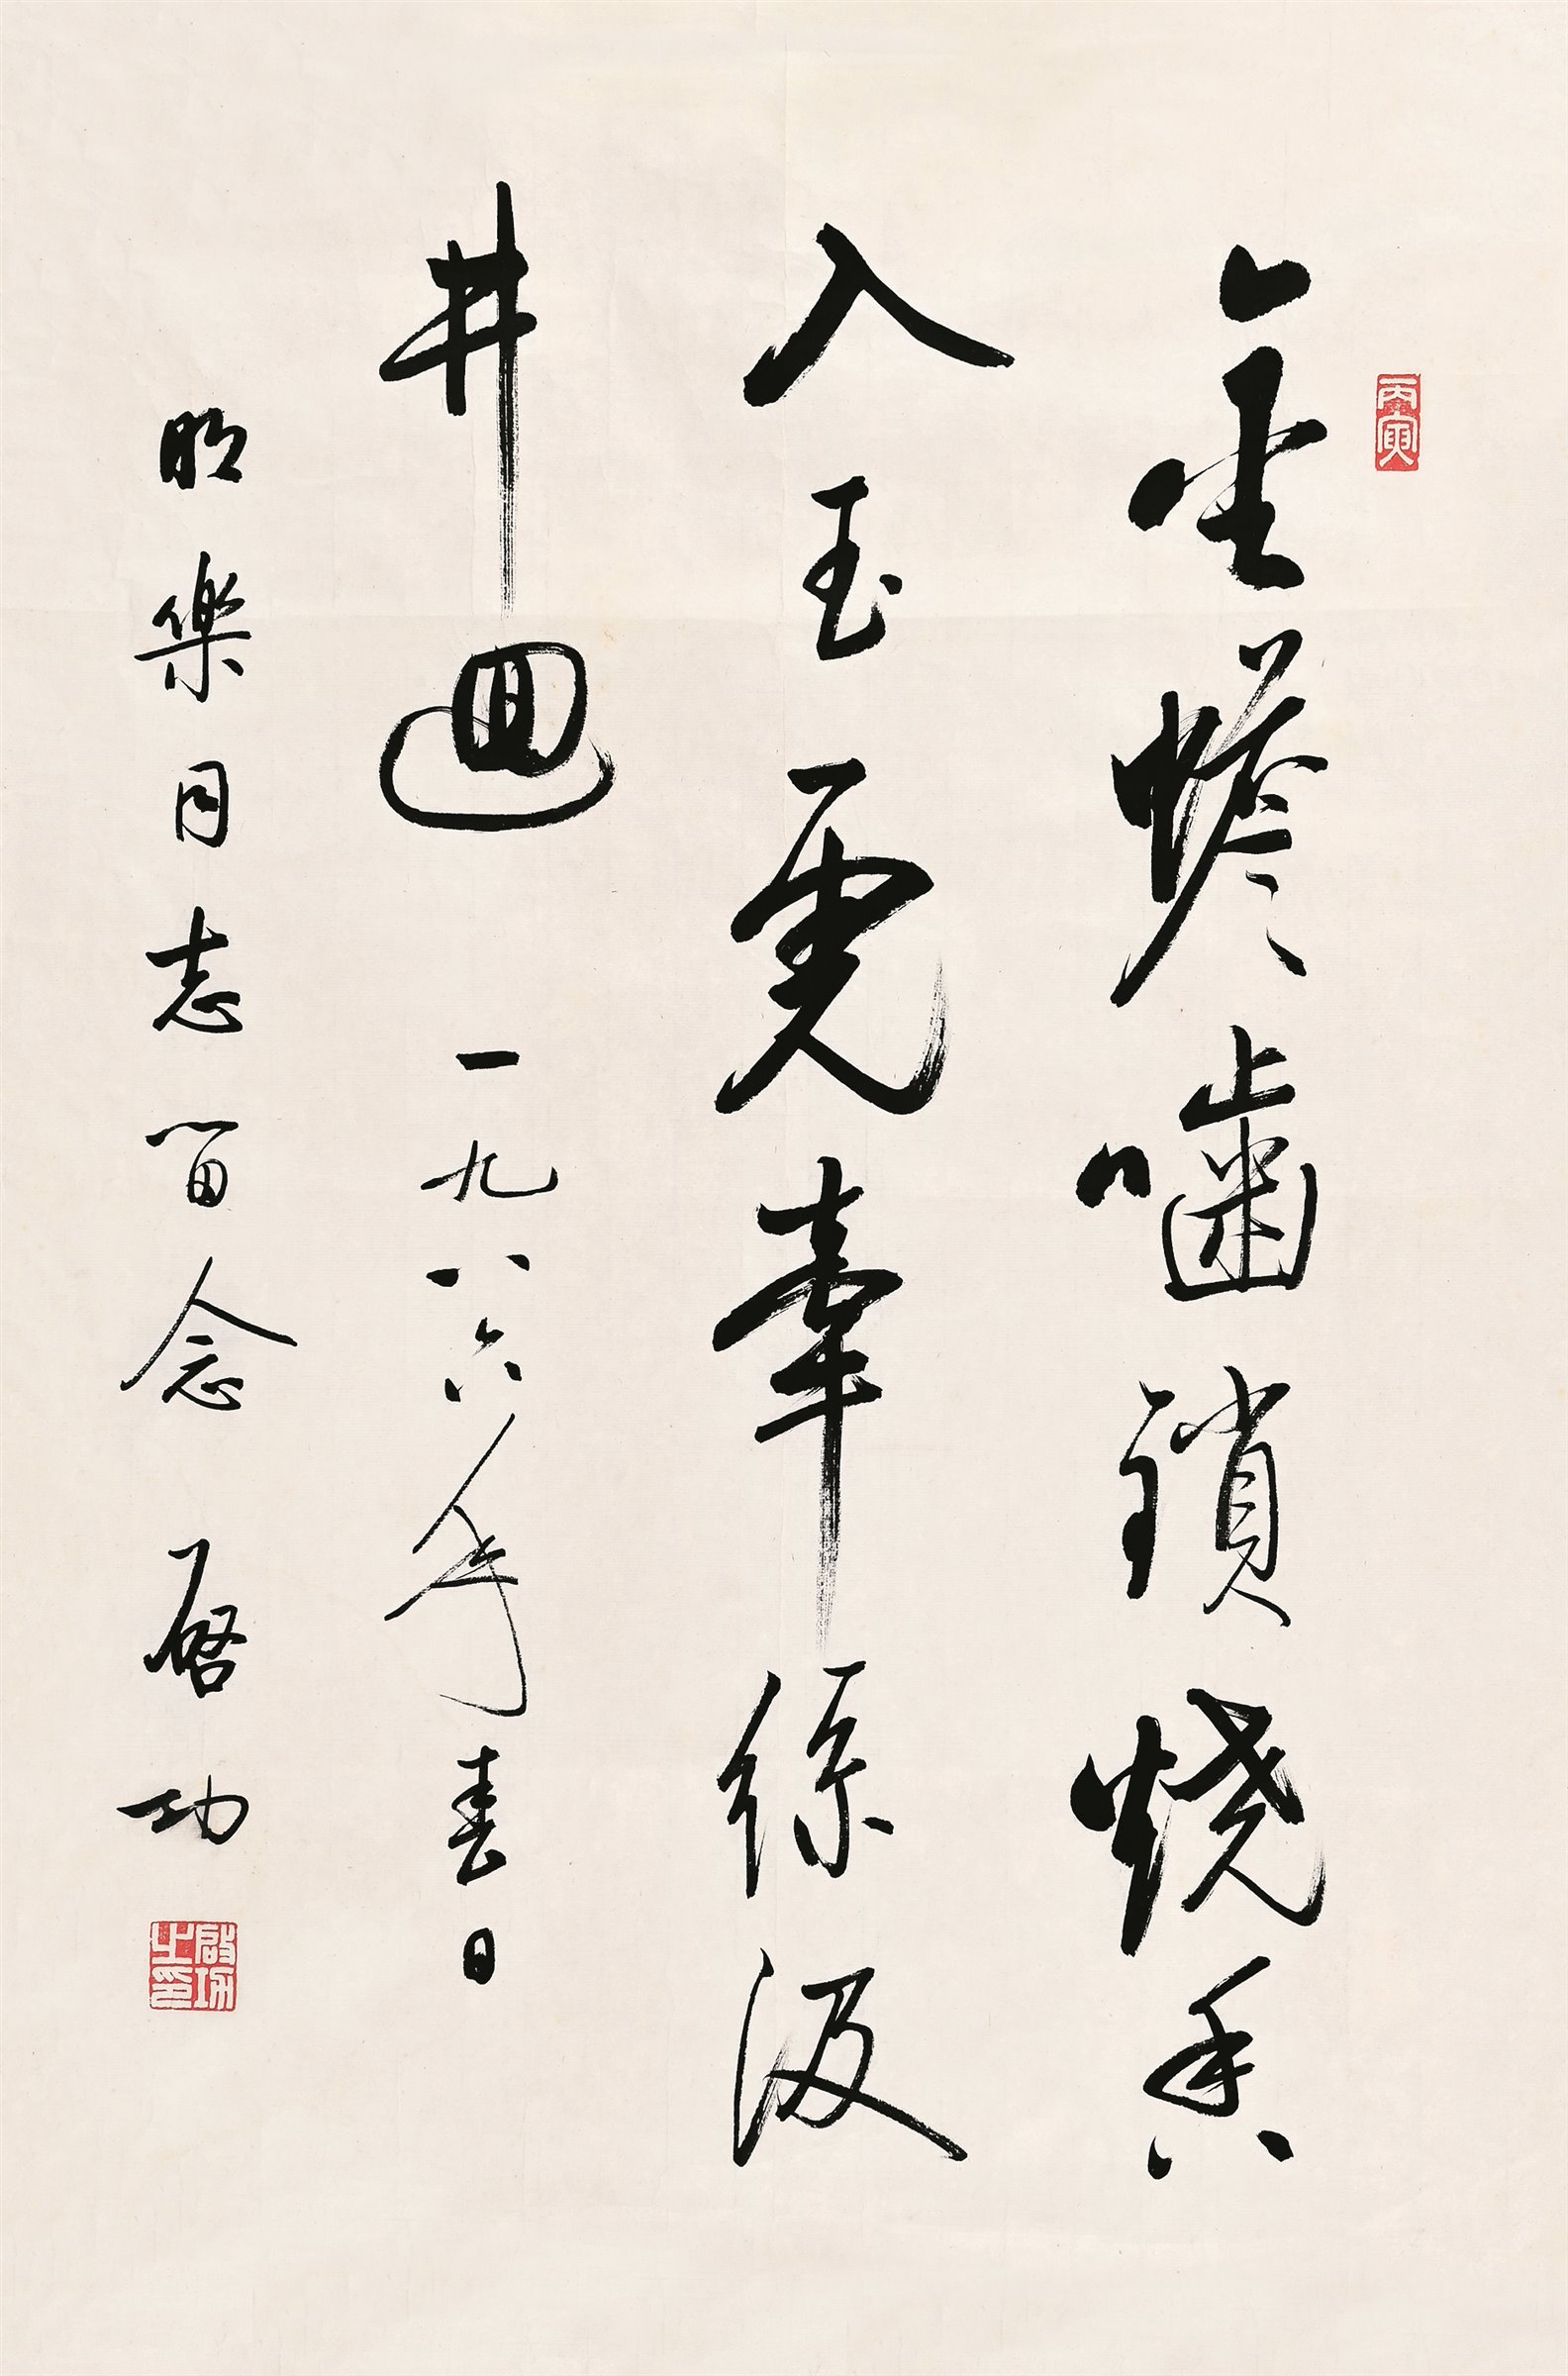 丙寅
金蟾嚙鎖燒香
入玉虎牽絲汲
井迴 一九八六年春日
明樂同志留念 啓功
啟功之印